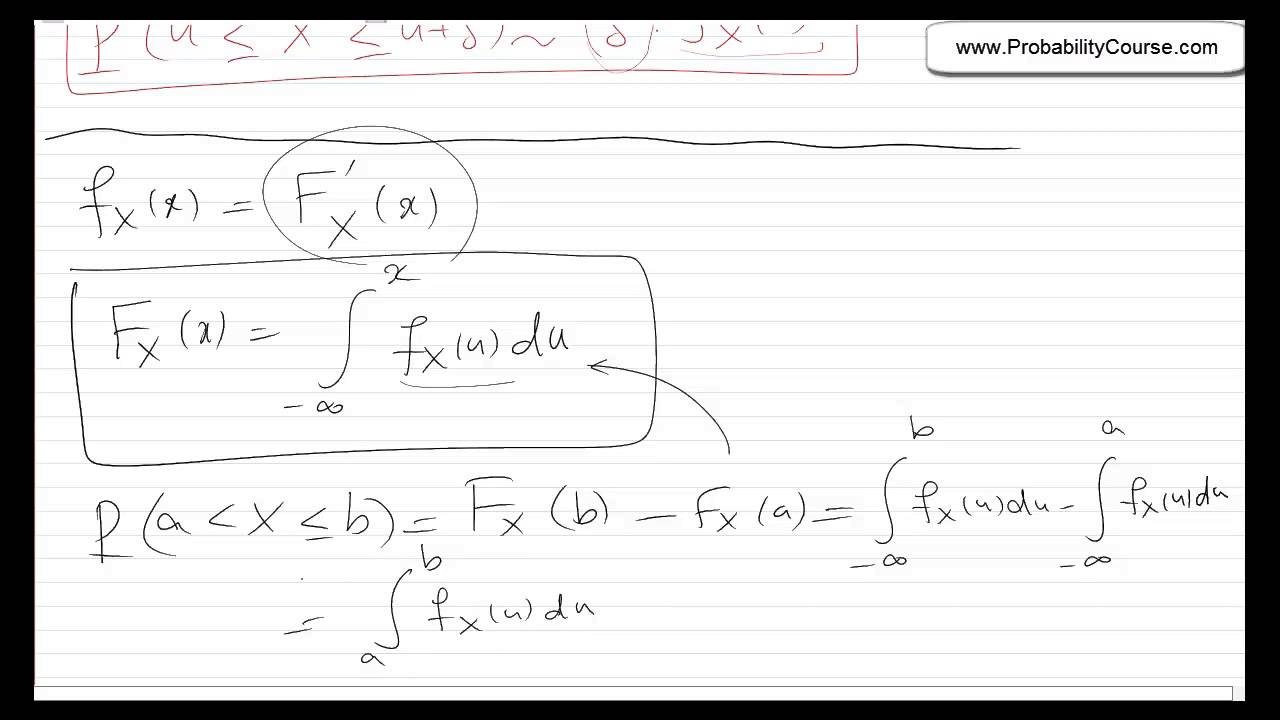 www.ProbabilityCourse.com
P(u ≤ X ≤ u+δ) ~ δ ·
f_X(x) = F'_X(x)
F_X(x) = ∫_{-∞}^{x} f_X(u) du
P(a < X ≤ b) = F_X(b) − F_X(a) = ∫_{-∞}^{b} f_X(u) du − ∫_{-∞}^{a} f_X(u) du
= ∫_{a}^{b} f_X(u) du